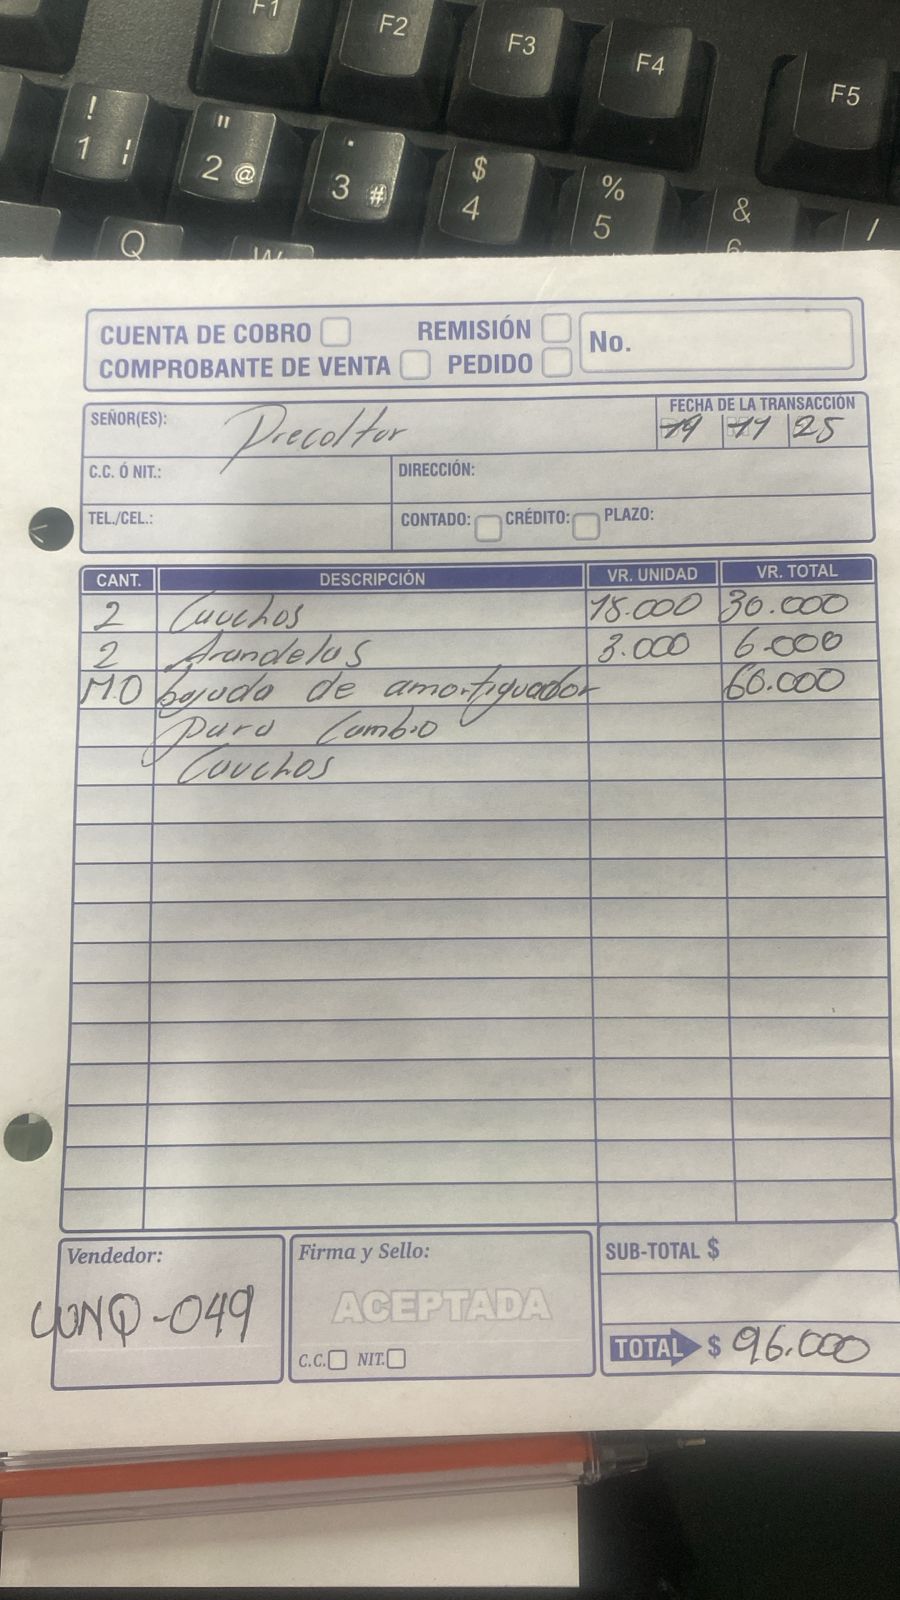 F1 F2 F3 F4 F5
! 1 ¦ " 2 @ · 3 # $ 4 % 5 & 6 /
Q W
CUENTA DE COBRO REMISIÓN No.
COMPROBANTE DE VENTA PEDIDO
SEÑOR(ES): Precoltur FECHA DE LA TRANSACCIÓN
19 11 25
C.C. Ó NIT.: DIRECCIÓN:
TEL./CEL.: CONTADO: CRÉDITO: PLAZO:
CANT. DESCRIPCIÓN VR. UNIDAD VR. TOTAL
2 Cauchos 15.000 30.000
2 Arandelas 3.000 6.000
M.O bajada de amortiguador 60.000
para Cambio
Cauchos
Vendedor: Firma y Sello: SUB-TOTAL $
WNQ-049 ACEPTADA
C.C. NIT. TOTAL $ 96.000